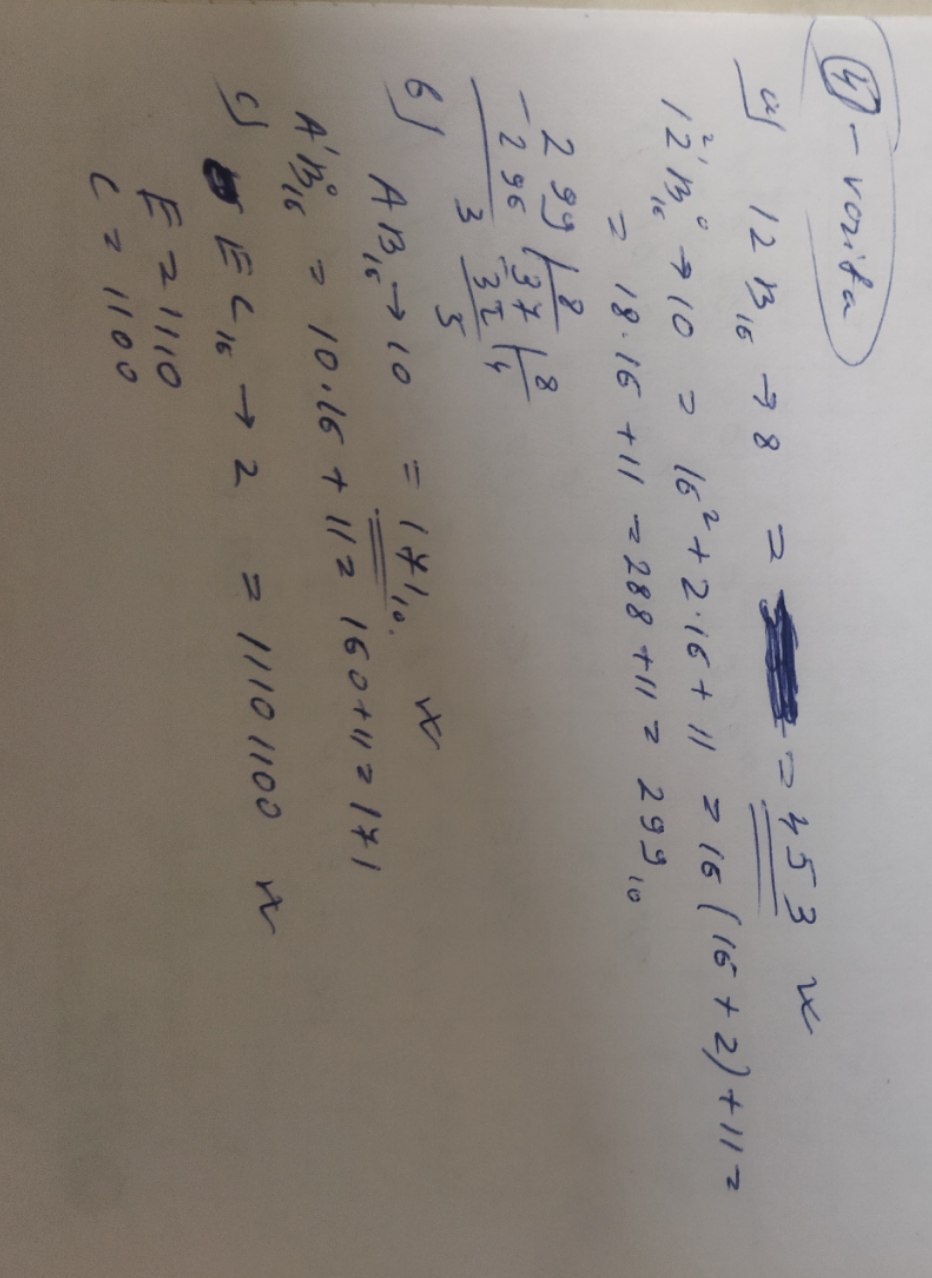 ④ - nozita
a) 12B₁₆ → 8 = = 453
12²B¹⁰₁₆ → 10 = 16² + 2·16 + 11 = 16(16 + 2) + 11 =
= 18·16 + 11 = 288 + 11 = 299₁₀
299 | 8
- 296 | 37 | 8
3 - 32 | 4
5
b) AB₁₆ → 10 = 171₁₀.
A¹B⁰₁₆ = 10·16 + 11 = 160 + 11 = 171
c) EC₁₆ → 2 = 1110 1100
E = 1110
C = 1100